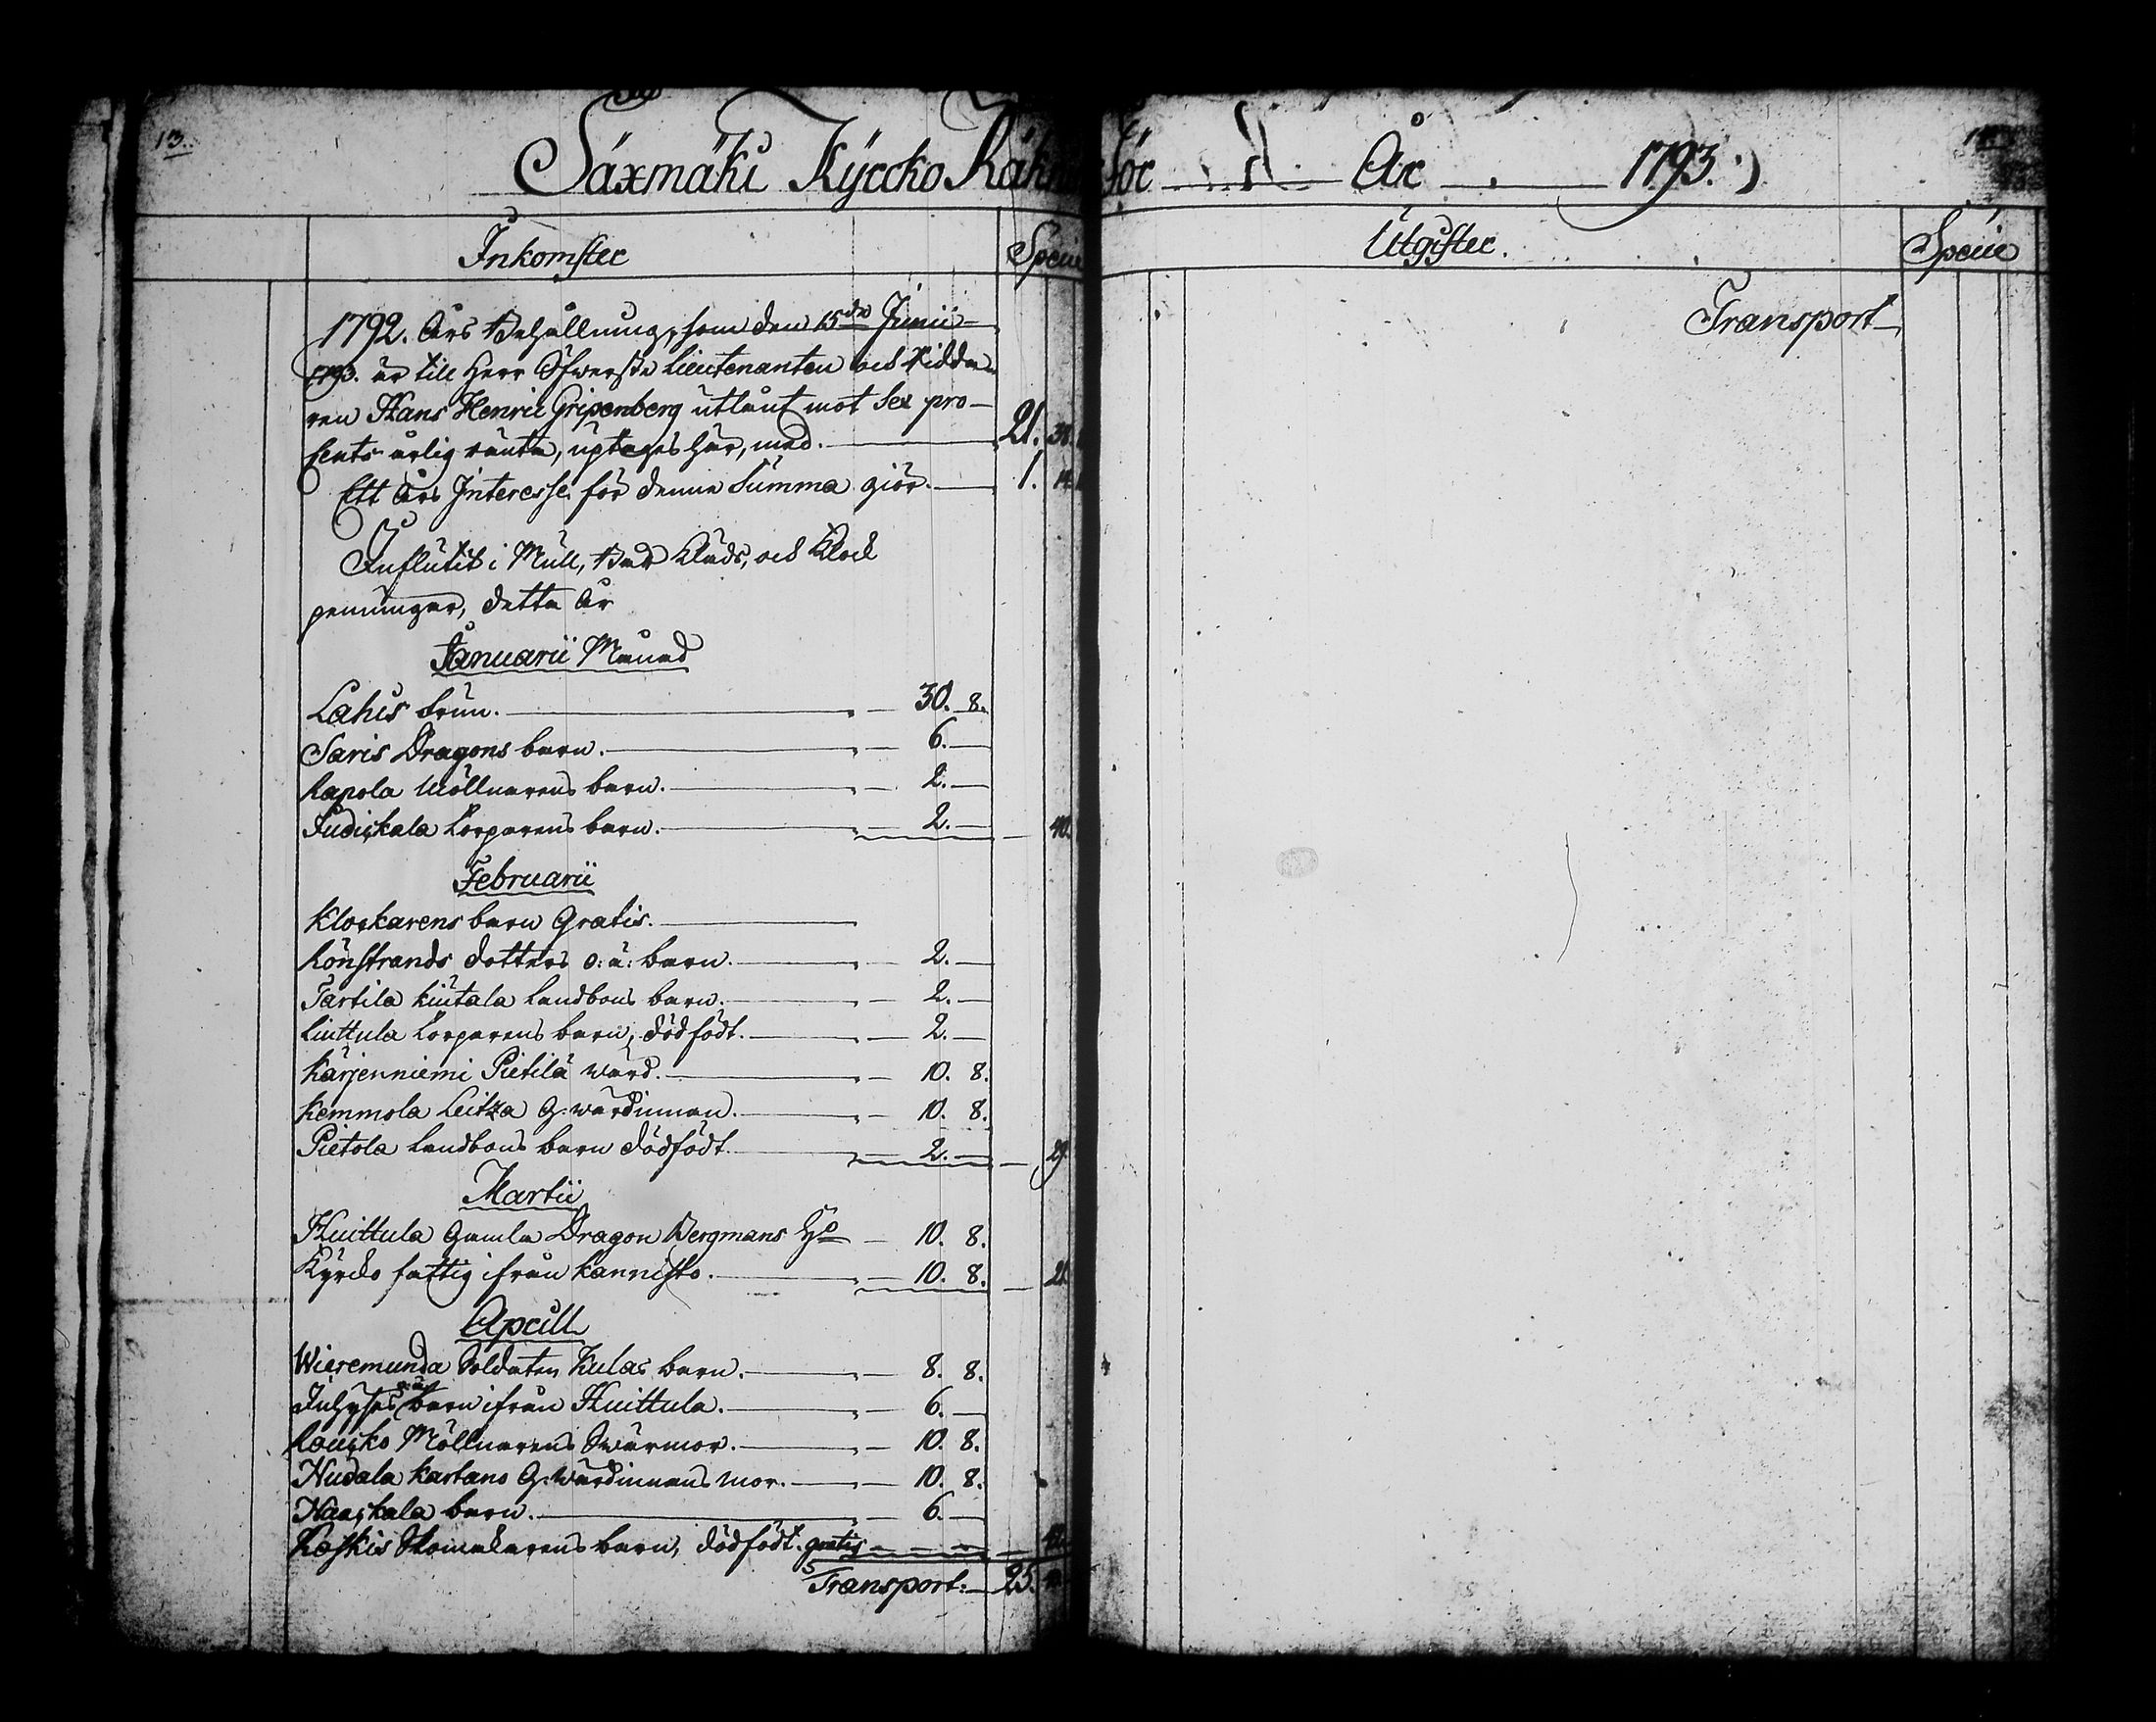 13.
Säxmäki Kyrcko Räkn för År 1793.
Inkomster Specie
1792. Års Behållning, som den 15de Junii
1793. är till Herr Öfwerste Lieutenanten och Ridda
ren Hans Henric Gripenberg utlånt mot Sex pro-
cents årlig ränta, uptages här, med. 21. 38.
Ett Års Interesse för denna Summa giör. 1. 14.
Influtit i Mull, Bår Kläds, och Klock
penningar, detta År
Januarii Månad
Lahis Frun. 30. 8.
Saris Dragons barn. 6.
Rapola Möllnarens barn. 2.
Judickala Torparens barn. 2. 40.
Februarii
Klockarens barn Gratis.
Rönstrands dotters o: ä: barn. 2.
Tartila Landbons barn. 2.
Liuttula Torparens barn, dödfödt. 2.
Kärjenniemi Pietilä wärd. 10. 8.
Kemmola Leitza G. wärdinnan. 10. 8.
Pietola Landbons barn dödfödt. 2. 29.
Martii
Huittula Gamla Dragon Bergmans 10. 8.
Kyrcko fattig ifrån Kannisto. 10. 8. 21.
Aprill
Soldaten Kulas barn. 8. 8.
Inhyses o: ä: barn ifrån Huittula. 6.
Möllnarens Swärmor. 10. 8.
Kartano G. Wärdinnans mor. 10. 8.
barn. 6.
Koskis Skomakarens barn, dödfödt. gratis
Transport. 25.
Utgifter. Specie
Transport